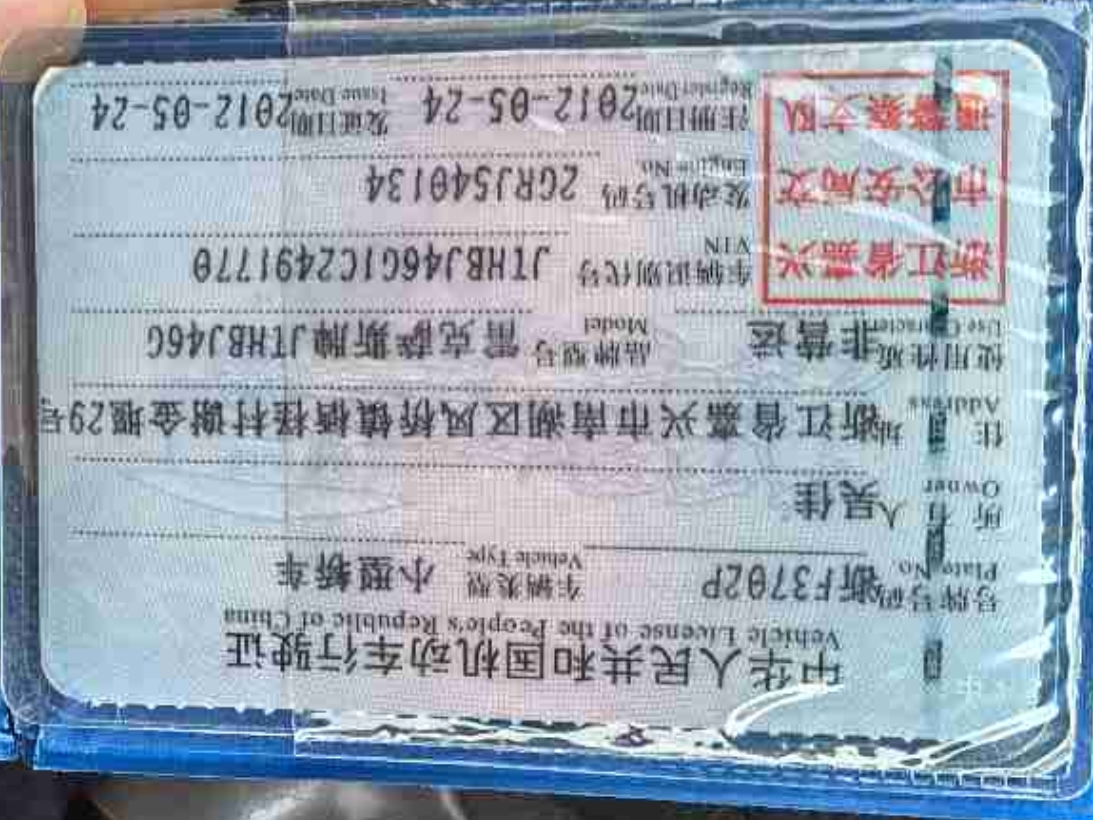 中华人民共和国机动车行驶证
Vehicle License of the People's Republic of China
号牌号码 浙F3702P 车辆类型 小型轿车
Plate No. Vehicle Type
所有人 吴佳
Owner
住址 浙江省嘉兴市南湖区凤桥镇栖柽村谢金堰29号
Address
使用性质 非营运 品牌型号 雷克萨斯牌JTHBJ46G
Use Character Model
浙江省嘉兴
市公安局交
通警察支队
车辆识别代号 JTHBJ46G1C2491770
VIN
发动机号码 2GRJ540134
Engine No.
注册日期 2012-05-24 发证日期 2012-05-24
Register Date Issue Date